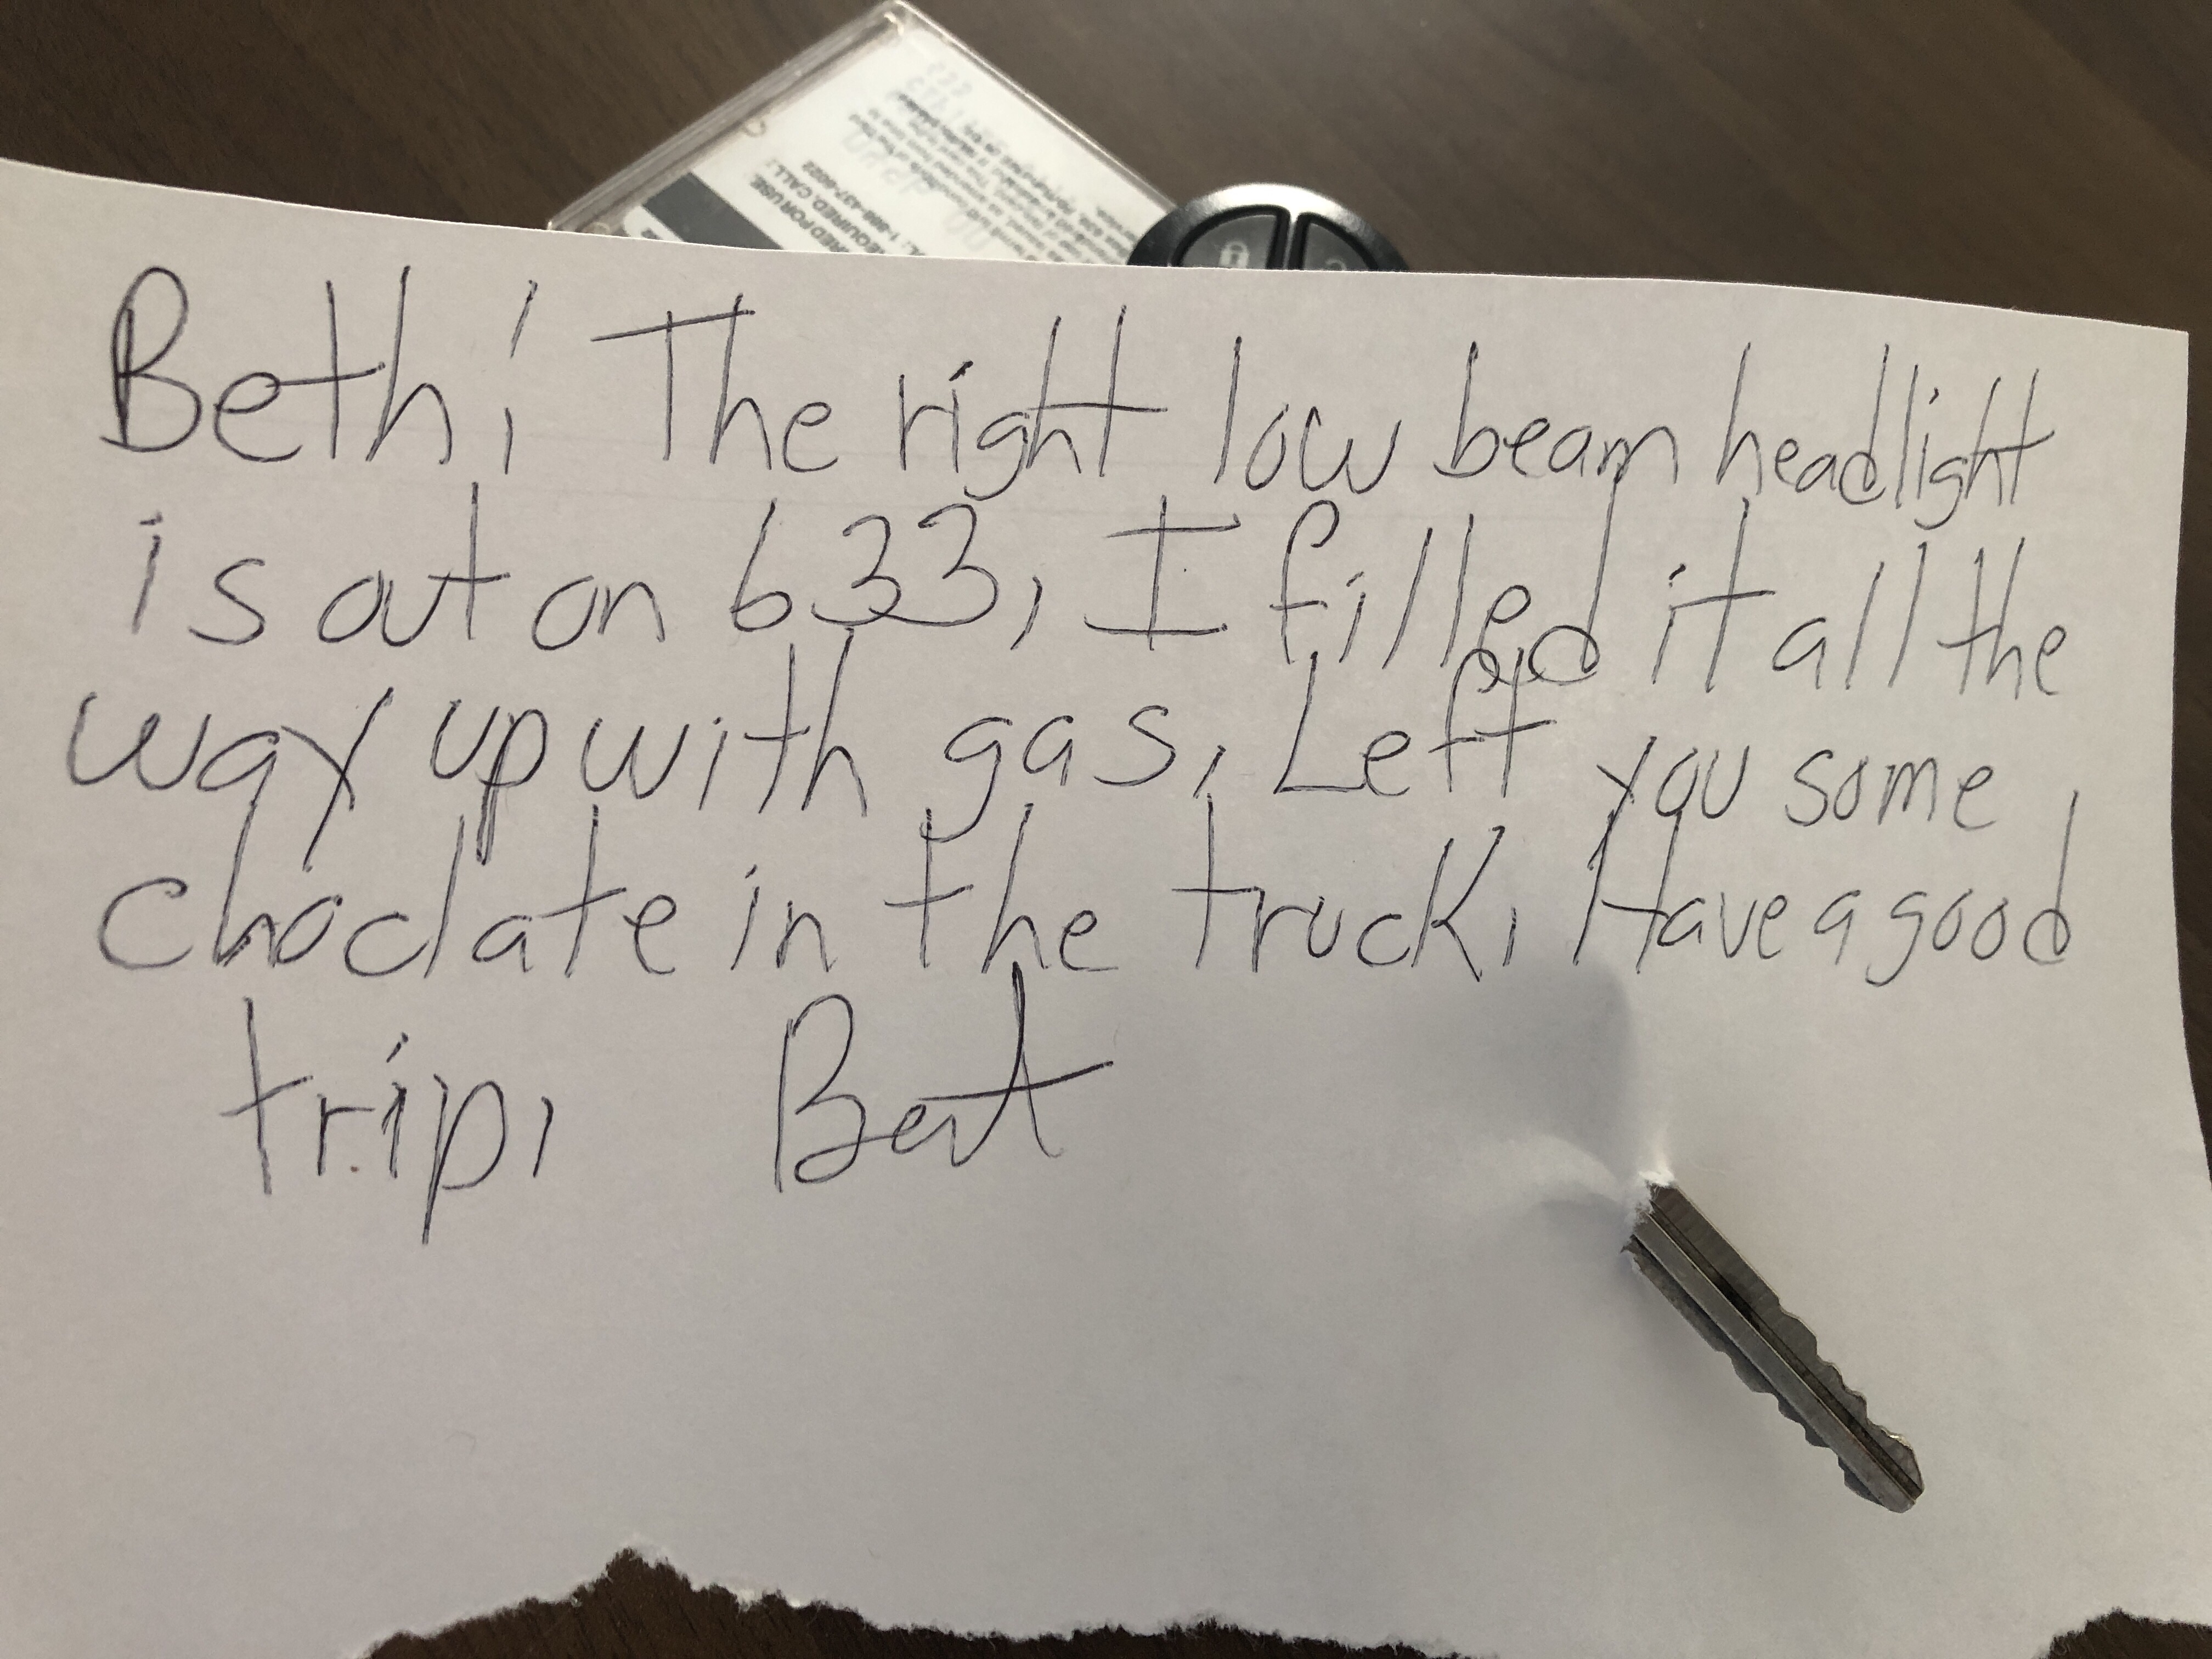 RED FOR USE.
EQUIRED, CALL:
Beth: The right low beam headlight
is out on 633, I filled it all the
way up with gas. Left you some
choclate in the truck. Have a good
trip. Bert